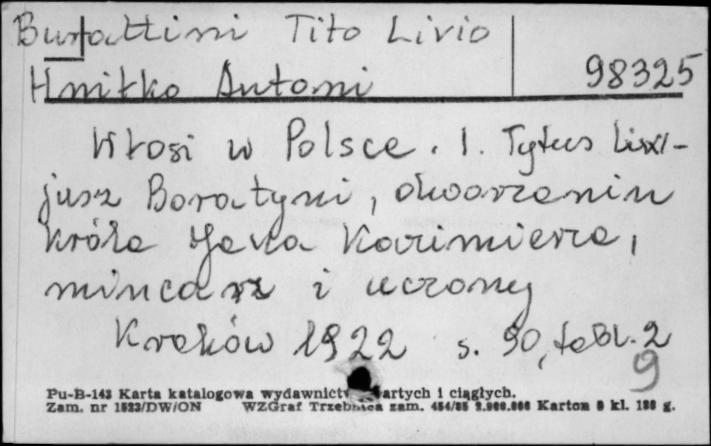 Burattini Tito Livio
Hniłko Antoni 98325
Włosi w Polsce. 1. Tytus Liwi-
jusz Boratyni, dworzanin
króla Jana Kazimierza,
mincarz i uczony
Kraków 1922 s. 90, tabl. 2
9
Pu-B-143 Karta katalogowa wydawnictw zwartych i ciągłych.
Zam. nr 1523/DW/ON WZGraf Trzebnica zam. Karton kl. g.